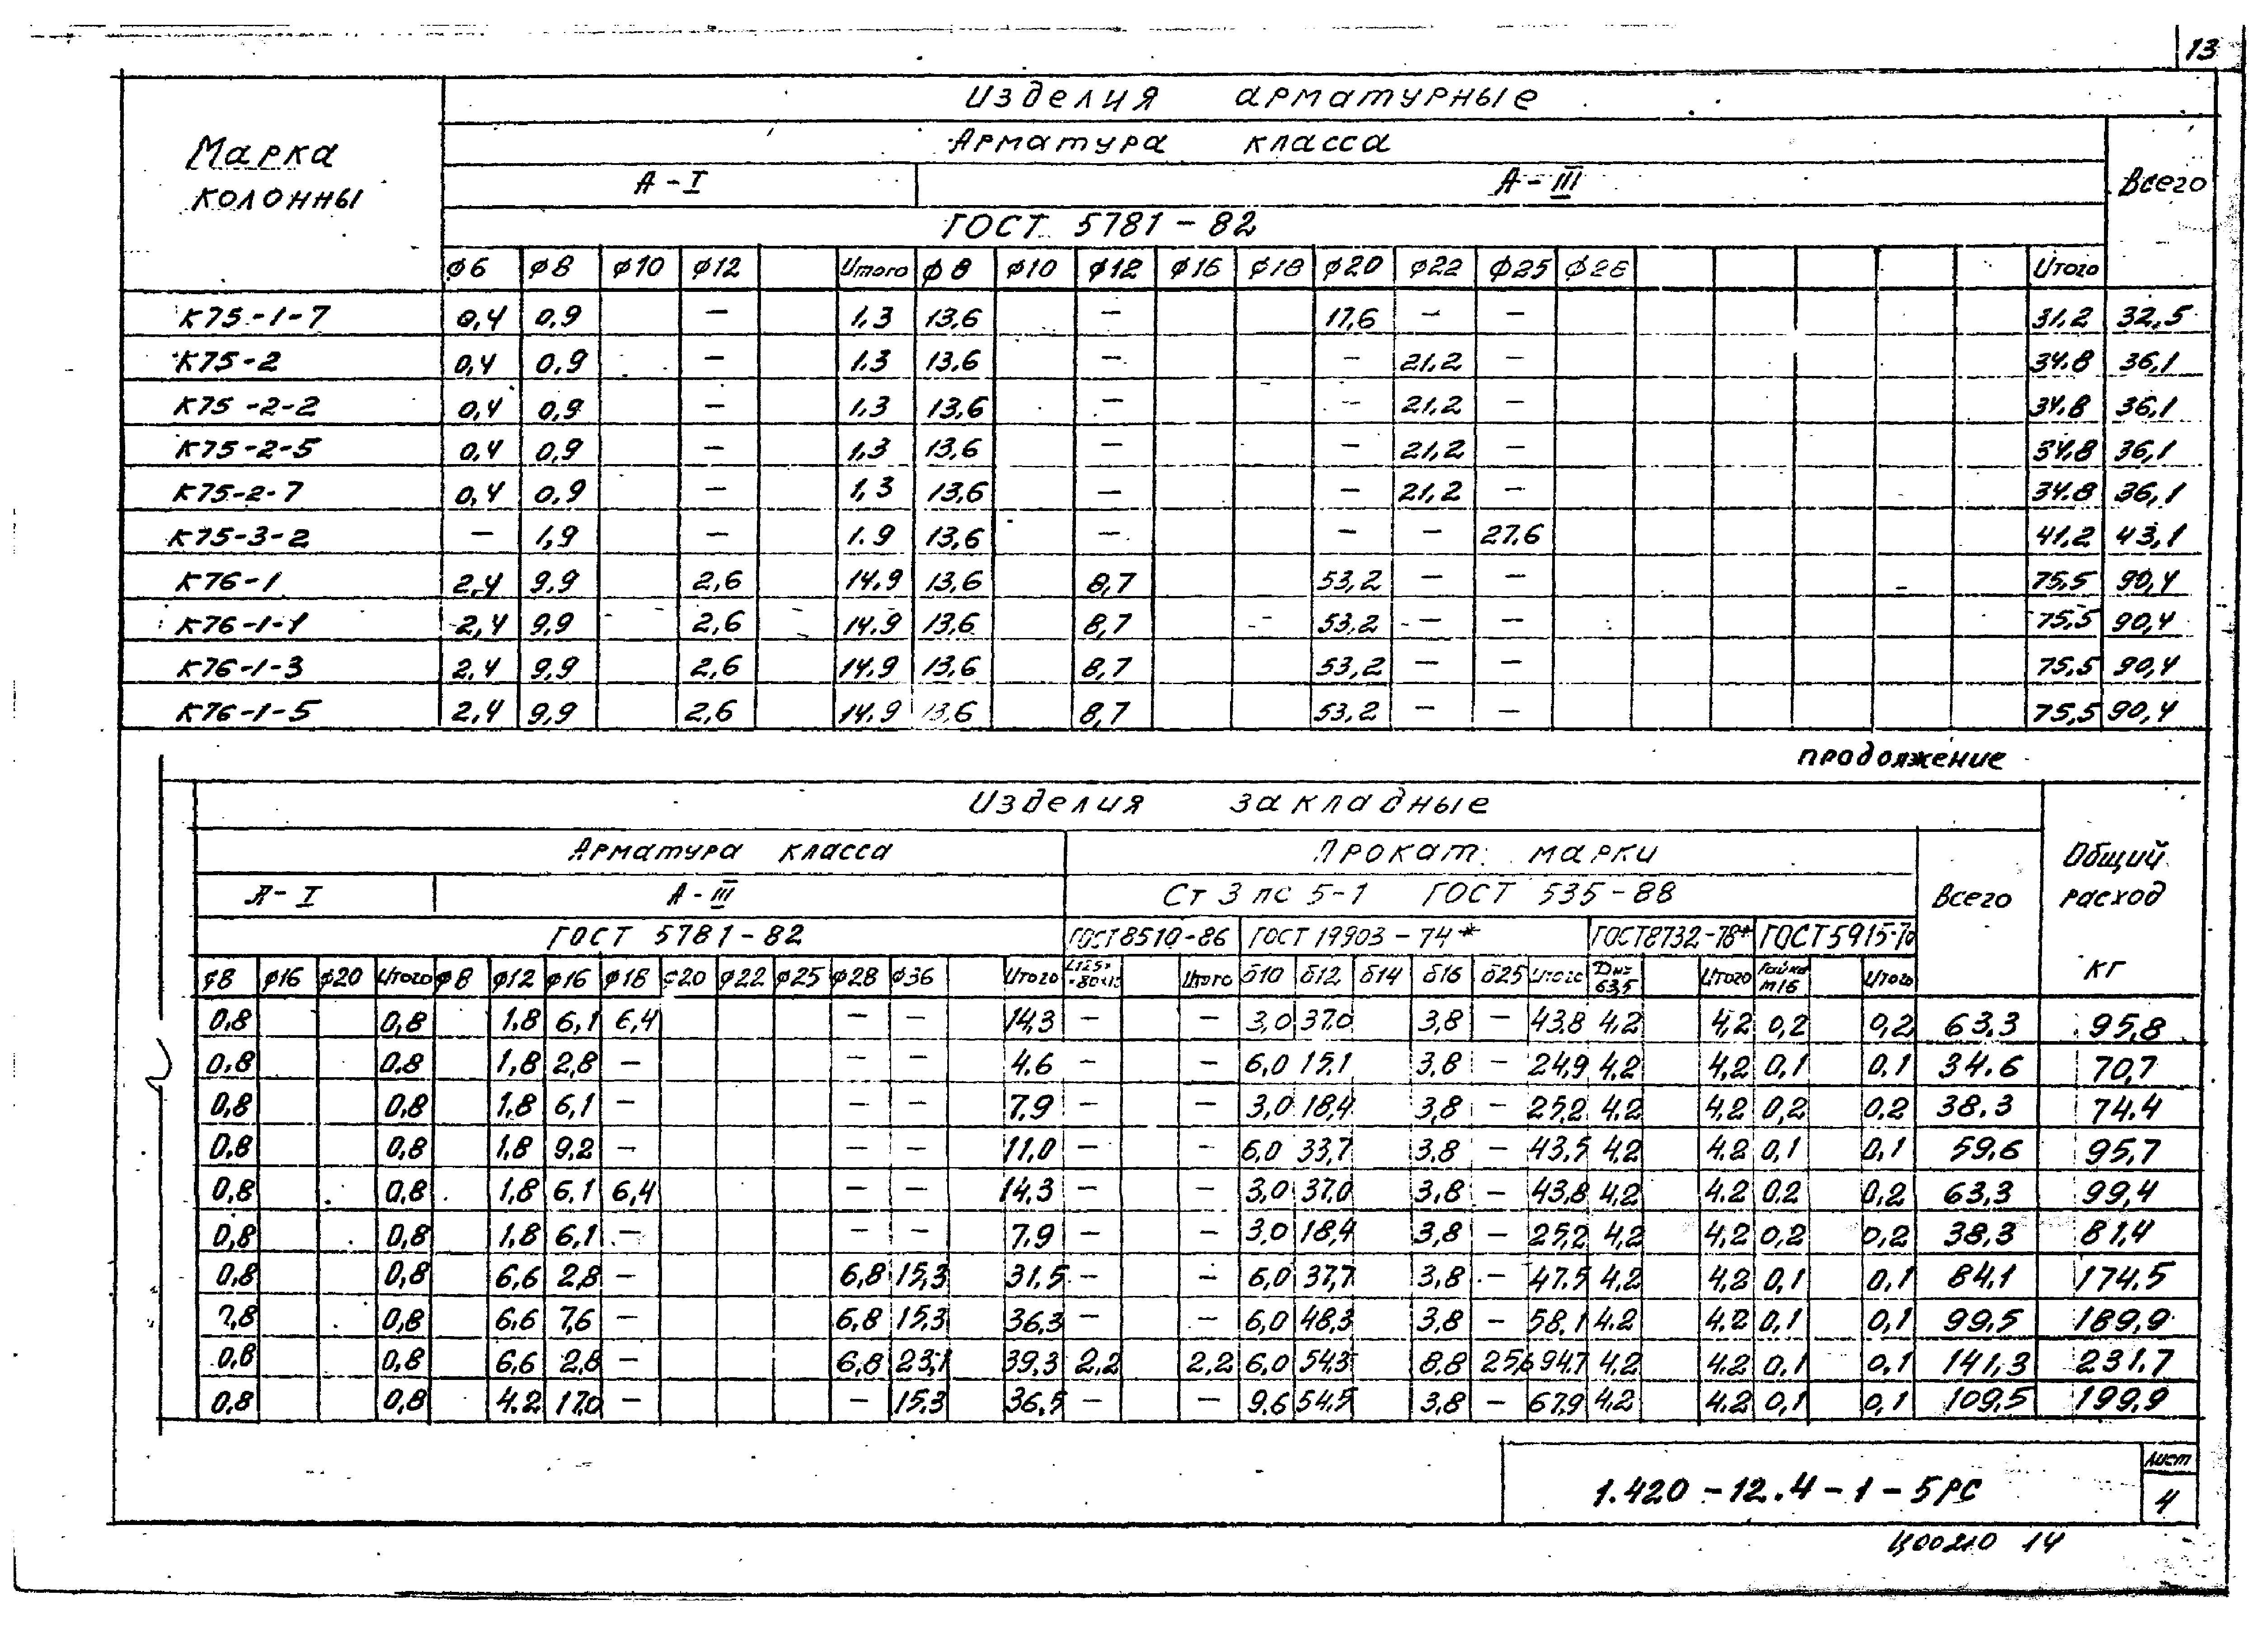 13
Изделия арматурные
Марка колонны
Арматура класса
Всего
А-I А-III
ГОСТ 5781-82
ф6 ф8 ф10 ф12 Итого ф8 ф10 ф12 ф16 ф18 ф20 ф22 ф25 ф28 Итого
К75-1-7 0,4 0,9 — 1,3 13,6 — 17,6 — — 31.2 32,5
К75-2 0,4 0,9 — 1.3 13,6 — — 21,2 — 34.8 36,1
К75-2-2 0,4 0,9 — 1,3 13,6 — — 21,2 — 34.8 36,1
К75-2-5 0,4 0,9 — 1,3 13,6 — — 21,2 — 34,8 36,1
К75-2-7 0,4 0,9 — 1,3 13,6 — — 21,2 — 34.8 36,1
К75-3-2 — 1,9 — 1.9 13,6 — — — 27,6 41,2 43,1
К76-1 2,4 9,9 2,6 14.9 13,6 8,7 53,2 — — 75,5 90,4
К76-1-1 2,4 9,9 2,6 14.9 13,6 8,7 53,2 — — 75,5 90,4
К76-1-3 2,4 9,9 2,6 14.9 13,6 8,7 53,2 — — 75,5 90,4
К76-1-5 2,4 9,9 2,6 14.9 13,6 8,7 53,2 — — 75,5 90,4
продолжение
Изделия закладные
Общий расход кг
Арматура класса Прокат марки
Всего
А-I А-III Ст 3 пс 5-1 ГОСТ 535-88
ГОСТ 5781-82 ГОСТ 8510-86 ГОСТ 19903-74* ГОСТ 8732-78* ГОСТ 5915-70
ф8 ф16 ф20 Итого ф8 ф12 ф16 ф18 ф20 ф22 ф25 ф28 ф36 Итого Итого δ10 δ12 δ14 δ16 δ25 Итого Дн= 63,5 Итого Гайка М16 Итого
0.8 0,8 1,8 6,1 6,4 — — 14,3 — — 3,0 37.0 3,8 — 43.8 4,2 4,2 0,2 0,2 63.3 95,8
0.8 0.8 1,8 2,8 — — — 4.6 — — 6,0 15,1 3,8 — 24,9 4,2 4,2 0,1 0.1 34.6 70,7
0,8 0,8 1,8 6,1 — — — 7.9 — — 3,0 18,4 3,8 — 25,2 4.2 4.2 0,2 0.2 38.3 74.4
0,8 0,8 1,8 9,2 — — — 11,0 — — 6,0 33,7 3,8 — 43,5 4.2 4.2 0,1 0,1 59,6 95,7
0,8 0,8 1,8 6,1 6,4 — — 14.3 — — 3,0 37,0 3,8 — 43,8 4,2 4.2 0.2 0,2 63,3 99,4
0,8 0,8 1,8 6,1 — — — 7.9 — — 3,0 18,4 3,8 — 25,2 4,2 4,2 0,2 0,2 38,3 81.4
0,8 0,8 6,6 2,8 — 6,8 15,3 31.5 — — 6,0 37,7 3,8 — 47.5 4.2 4,2 0,1 0,1 84,1 174.5
0,8 0,8 6,6 7,6 — 6,8 15,3 36,3 — — 6,0 48,3 3,8 — 58,1 4.2 4.2 0,1 0,1 99,5 189,9
0,8 0,8 6,6 2,8 — 6,8 23,1 39,3 2,2 2,2 6,0 54,3 8,8 25,6 94,7 4,2 4.2 0,1 0,1 141,3 231.7
0,8 0,8 4.2 17,0 — — 15,3 36,5 — — 9,6 54,5 3,8 — 67,9 4,2 4.2 0,1 0,1 109,5 199,9
1.420-12.4-1-5РС
Лист
4
Ц00210 14